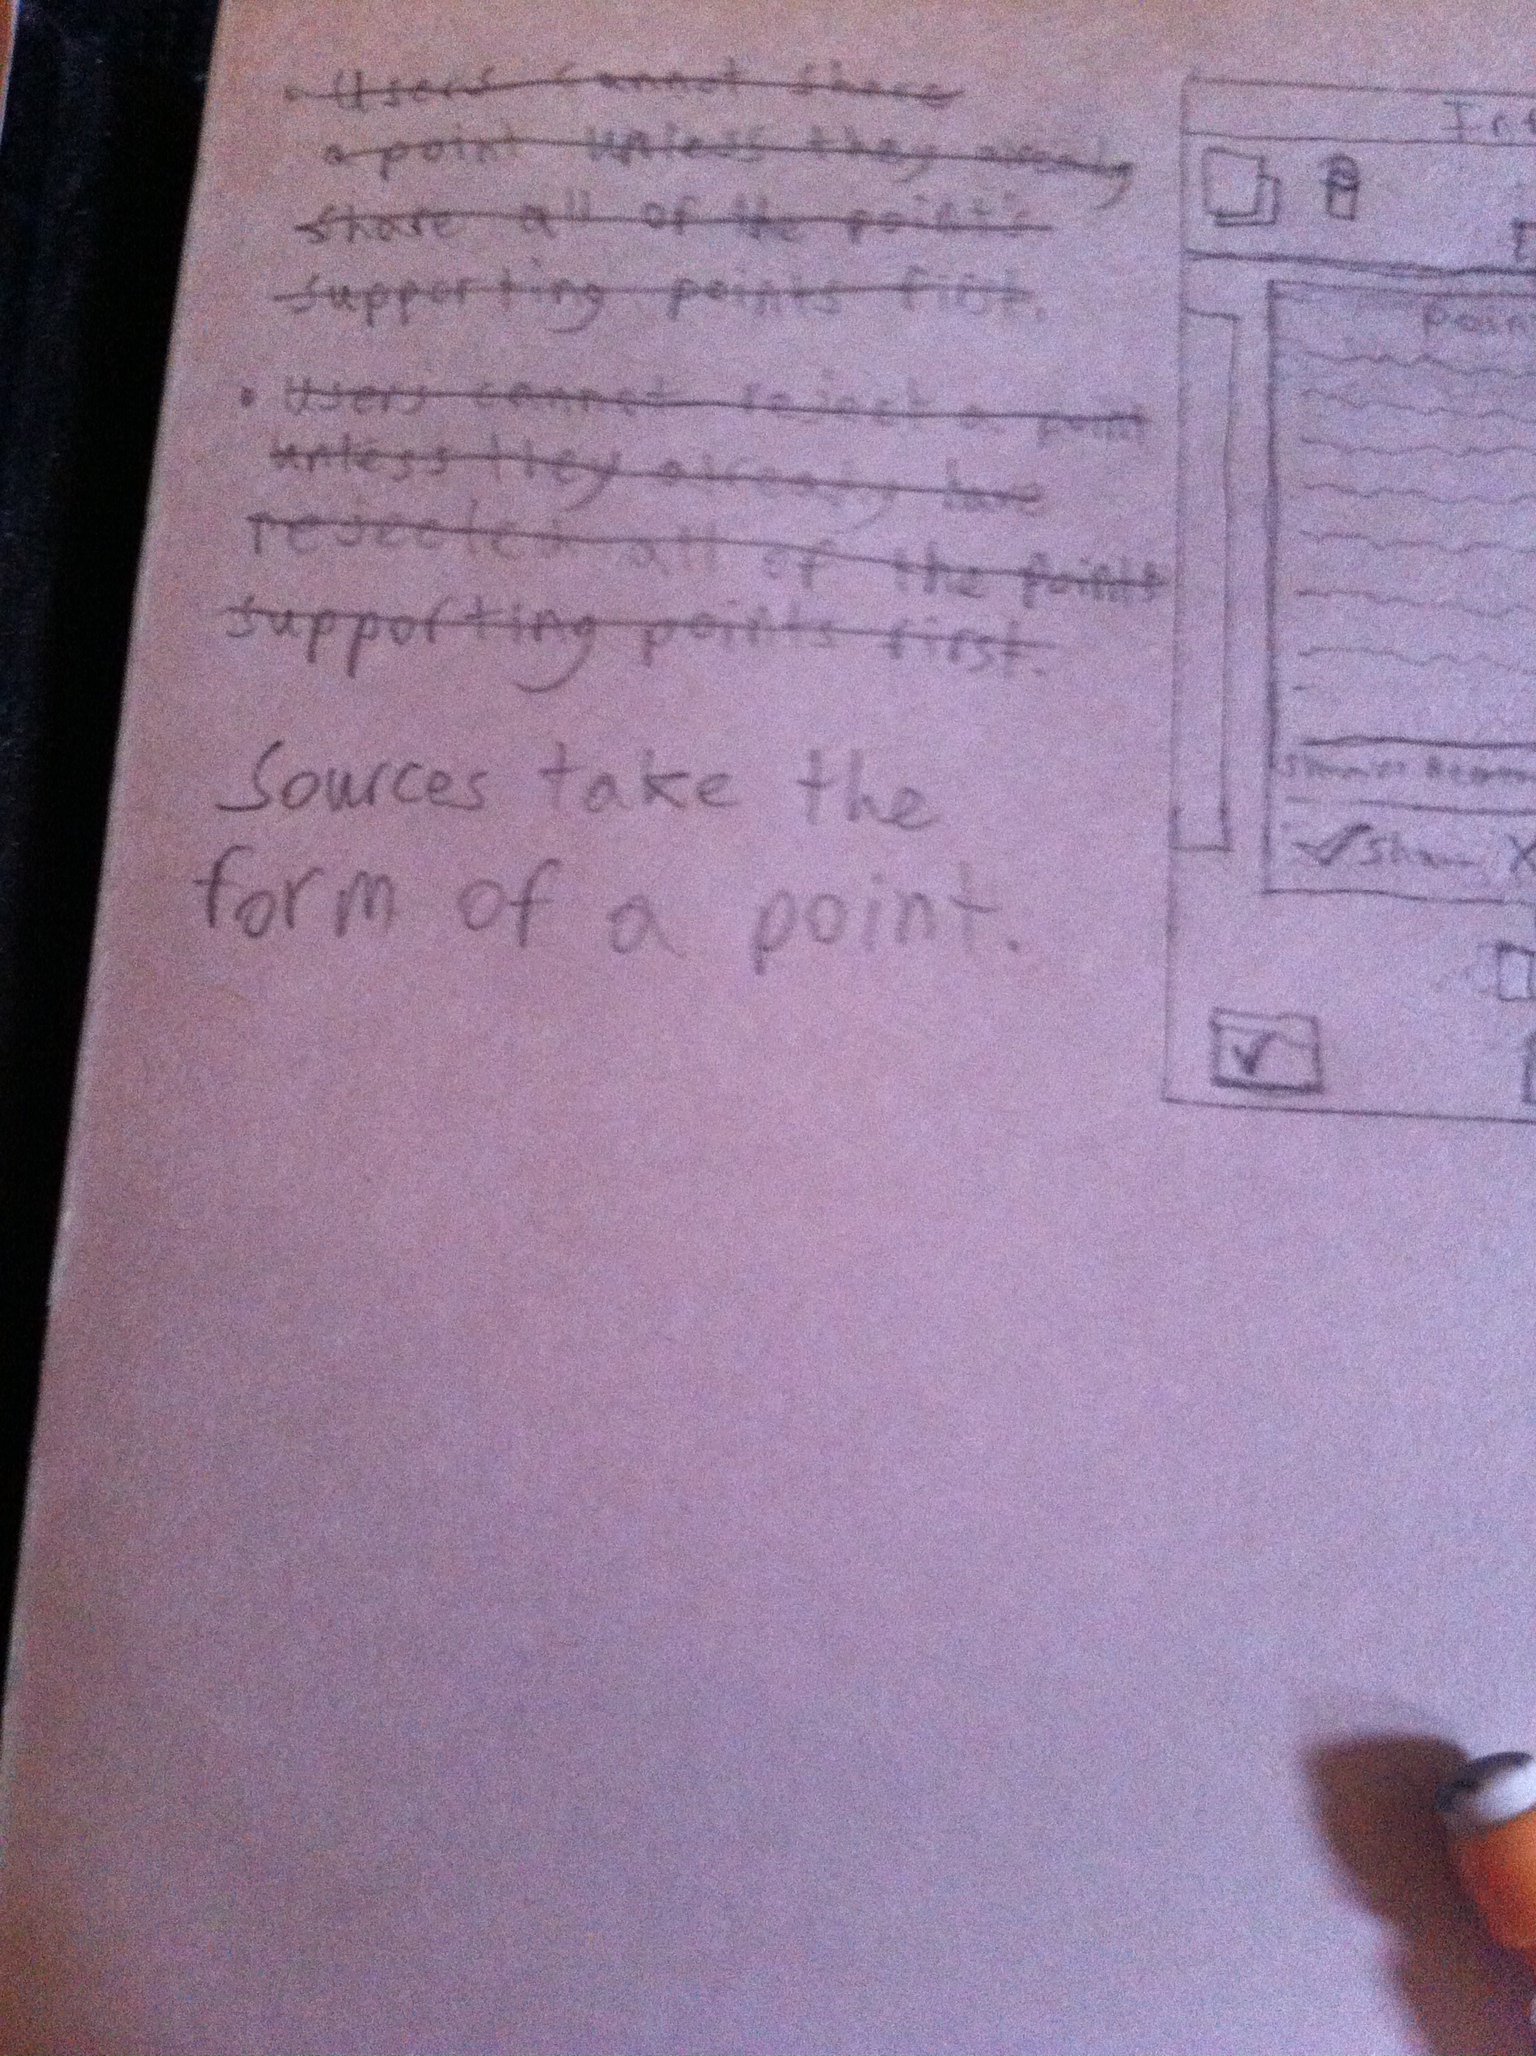 • Users cannot share
a point unless they already
share all of the point's
supporting points first.
• Users cannot reject a point
unless they already have
rejected all of the points
supporting points first.
Sources take the
form of a point.
Share